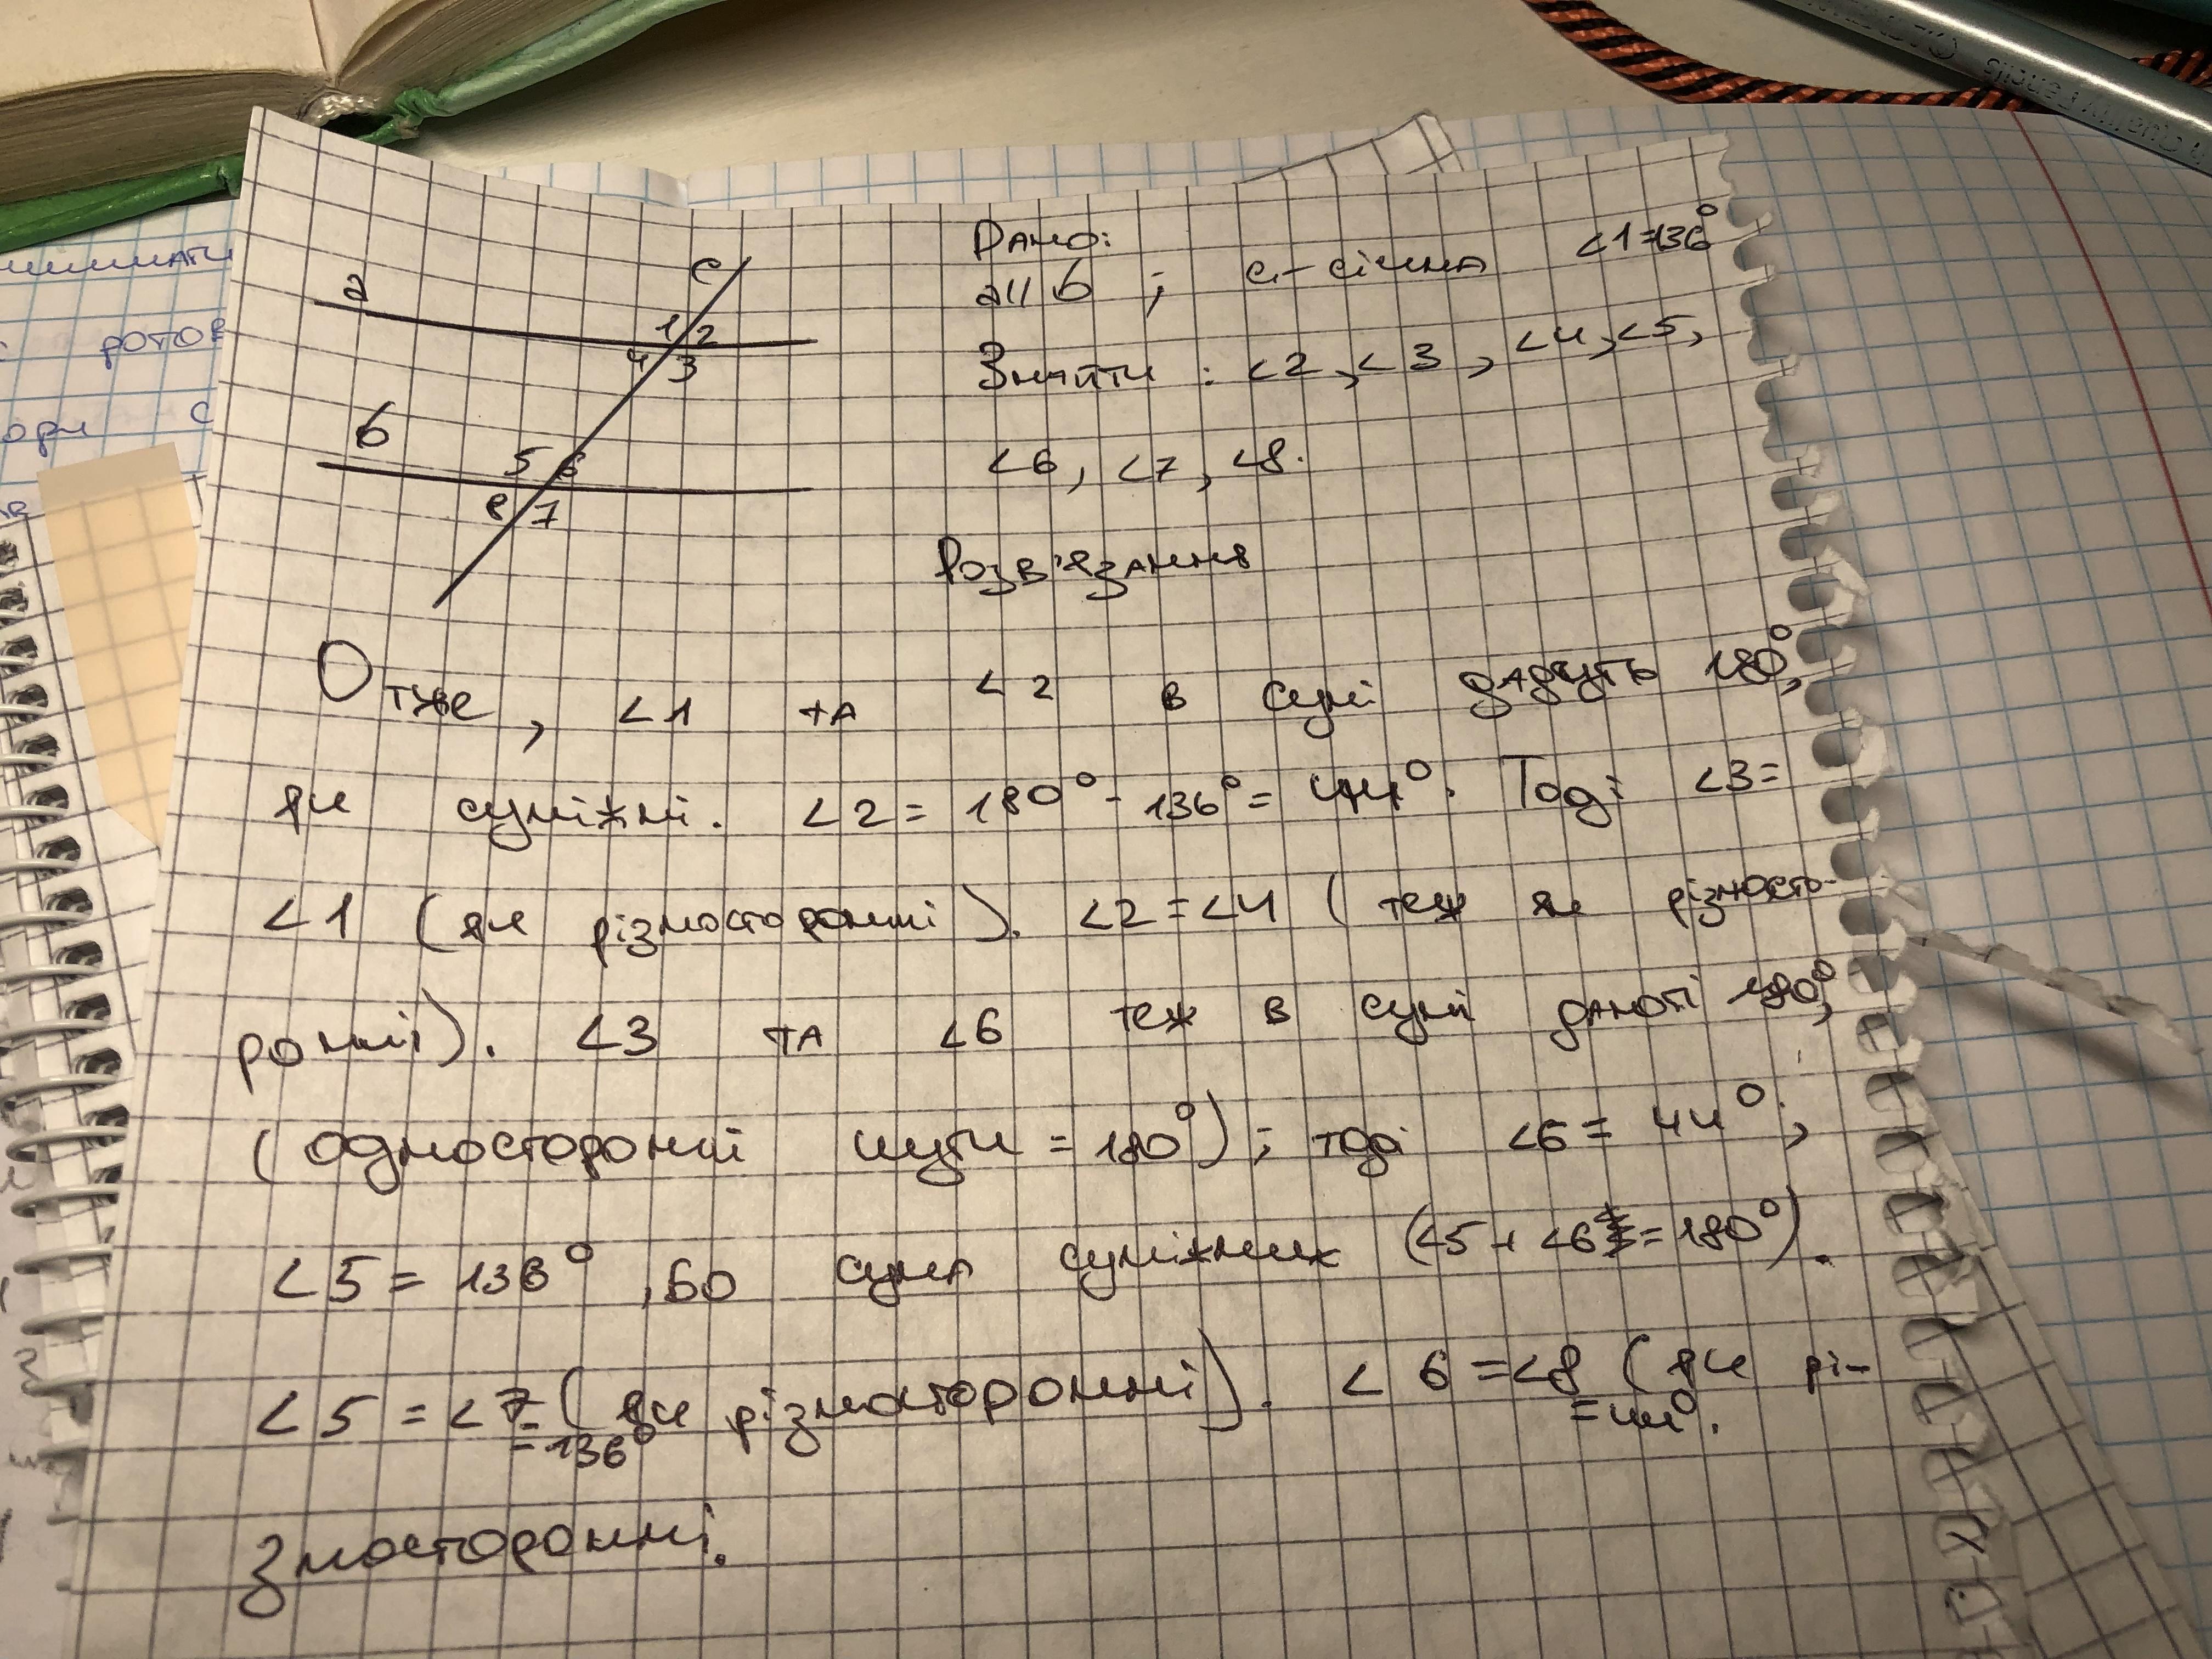 a
c
1 2
4 3
б
5 6
8 7
Дано:
a || б ; c - січна ∠1=136°
Знайти : ∠2, ∠3, ∠4, ∠5,
∠6, ∠7, ∠8.
Розв'язання
Отже, ∠1 та ∠2 в сумі дадуть 180°,
як суміжні. ∠2 = 180° - 136° = 44°. Тоді ∠3 =
∠1 (як різносторонні). ∠2 = ∠4 ( теж як різносто-
ронні). ∠3 та ∠6 теж в сумі дають 180°,
(односторонні кути = 180°); тоді ∠6 = 44°;
∠5 = 136°, бо сума суміжних (∠5 + ∠6 = 180°).
∠5 = ∠7 = (як різносторонні). ∠6 = ∠8 (як рі-
= 136° = 44°.
зносторонні.